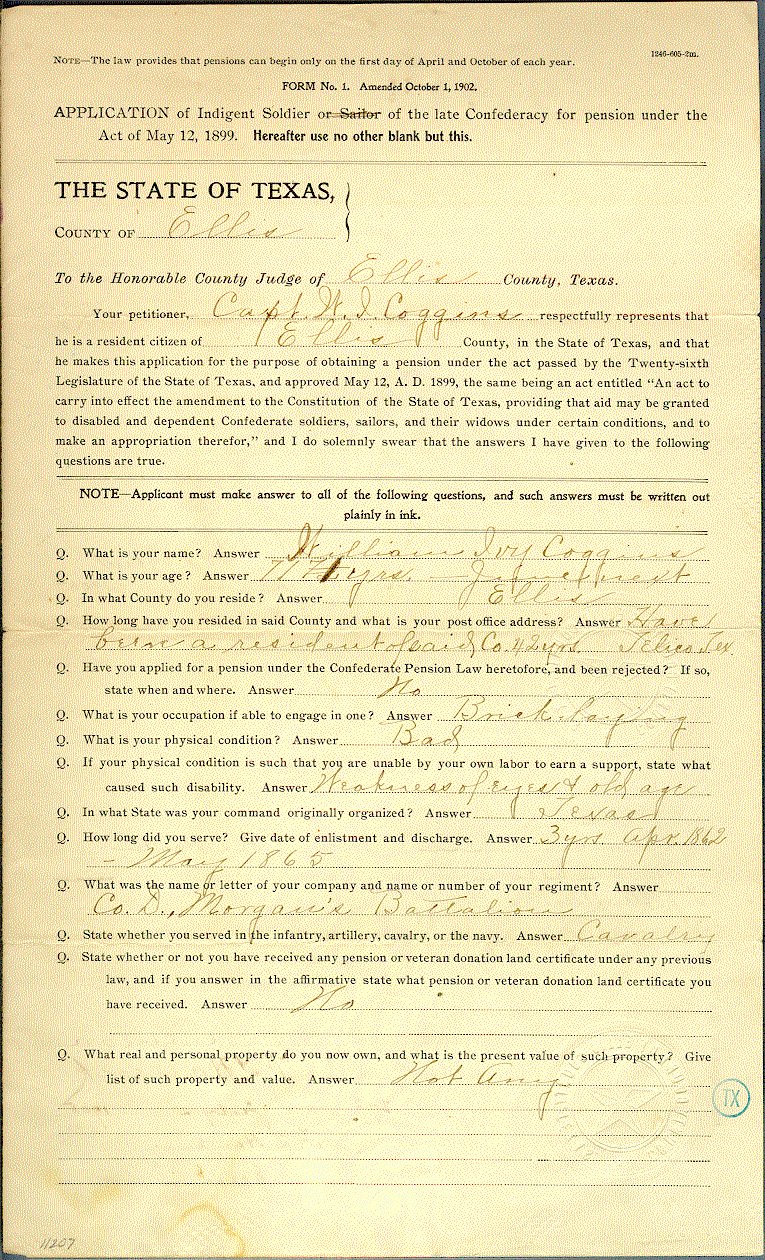 1246-605-2m.
NOTE—The law provides that pensions can begin only on the first day of April and October of each year.
FORM No. 1. Amended October 1, 1902.
APPLICATION of Indigent Soldier or Sailor of the late Confederacy for pension under the
Act of May 12, 1899. Hereafter use no other blank but this.
THE STATE OF TEXAS,
COUNTY OF Ellis
To the Honorable County Judge of Ellis County, Texas.
Your petitioner, Capt. W. I. Coggins respectfully represents that
he is a resident citizen of Ellis County, in the State of Texas, and that
he makes this application for the purpose of obtaining a pension under the act passed by the Twenty-sixth
Legislature of the State of Texas, and approved May 12, A. D. 1899, the same being an act entitled “An act to
carry into effect the amendment to the Constitution of the State of Texas, providing that aid may be granted
to disabled and dependent Confederate soldiers, sailors, and their widows under certain conditions, and to
make an appropriation therefor,” and I do solemnly swear that the answers I have given to the following
questions are true.
NOTE—Applicant must make answer to all of the following questions, and such answers must be written out
plainly in ink.
Q. What is your name? Answer William Ivy Coggins
Q. What is your age? Answer yrs.
Q. In what County do you reside? Answer Ellis
Q. How long have you resided in said County and what is your post office address? Answer Have
been a resident of said Co. 42 yrs. Telico Tex
Q. Have you applied for a pension under the Confederate Pension Law heretofore, and been rejected? If so,
state when and where. Answer No
Q. What is your occupation if able to engage in one? Answer Brick laying
Q. What is your physical condition? Answer Bad
Q. If your physical condition is such that you are unable by your own labor to earn a support, state what
caused such disability. Answer Weakness of eyes & old age
Q. In what State was your command originally organized? Answer Texas
Q. How long did you serve? Give date of enlistment and discharge. Answer 3 yrs Apr. 1862
- May 1865
Q. What was the name or letter of your company and name or number of your regiment? Answer
Co. D., Morgan's Battalion
Q. State whether you served in the infantry, artillery, cavalry, or the navy. Answer Cavalry
Q. State whether or not you have received any pension or veteran donation land certificate under any previous
law, and if you answer in the affirmative state what pension or veteran donation land certificate you
have received. Answer No
Q. What real and personal property do you now own, and what is the present value of such property? Give
list of such property and value. Answer Not Any
TX
11207